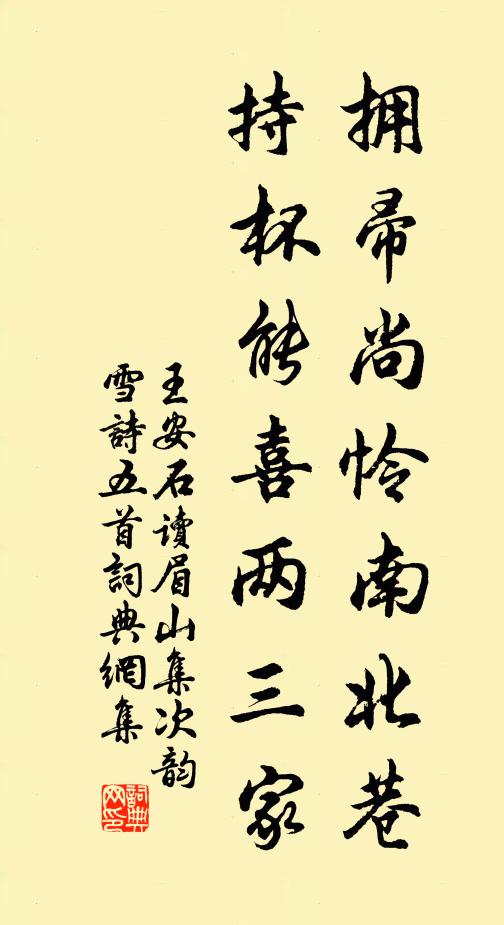 拥帚尚怜南北巷
持杯能喜两三家
王安石读眉山集次韵
雪詩五首詞典網集
詞典
网印